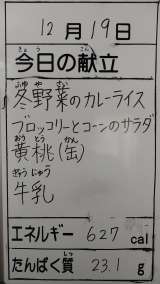 12月19日
きょう こん
今日の献立
ふゆ や さい
冬野菜のカレーライス
ブロッコリーとコーンのサラダ
おう とう かん
黄桃(缶)
ぎゅうにゅう
牛乳
エネルギー 627 cal
たんぱく質 23.1 g